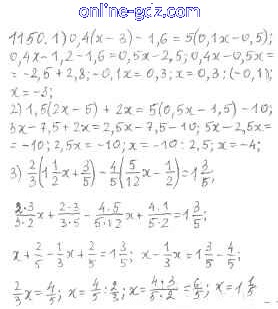 online-gdz.com
1150. 1) 0,4(x - 3) - 1,6 = 5(0,1x - 0,5);
0,4x - 1,2 - 1,6 = 0,5x - 2,5; 0,4x - 0,5x =
= -2,5 + 2,8; -0,1x = 0,3; x = 0,3 : (-0,1);
x = -3;
2) 1,5(2x - 5) + 2x = 5(0,5x - 1,5) - 10;
3x - 7,5 + 2x = 2,5x - 7,5 - 10; 5x - 2,5x =
= -10; 2,5x = -10; x = -10 : 2,5; x = -4;
3) 2/3(1 1/2x + 3/5) - 4/5(5/12x - 1/2) = 1 3/5;
2·3/3·2x + 2·3/3·5 - 4·5/5·12x + 4·1/5·2 = 1 3/5;
x + 2/5 - 1/3x + 2/5 = 1 3/5; x - 1/3x = 1 3/5 - 4/5;
2/3x = 4/5; x = 4/5 : 2/3; x = 4·3/5·2 = 6/5; x = 1 1/5